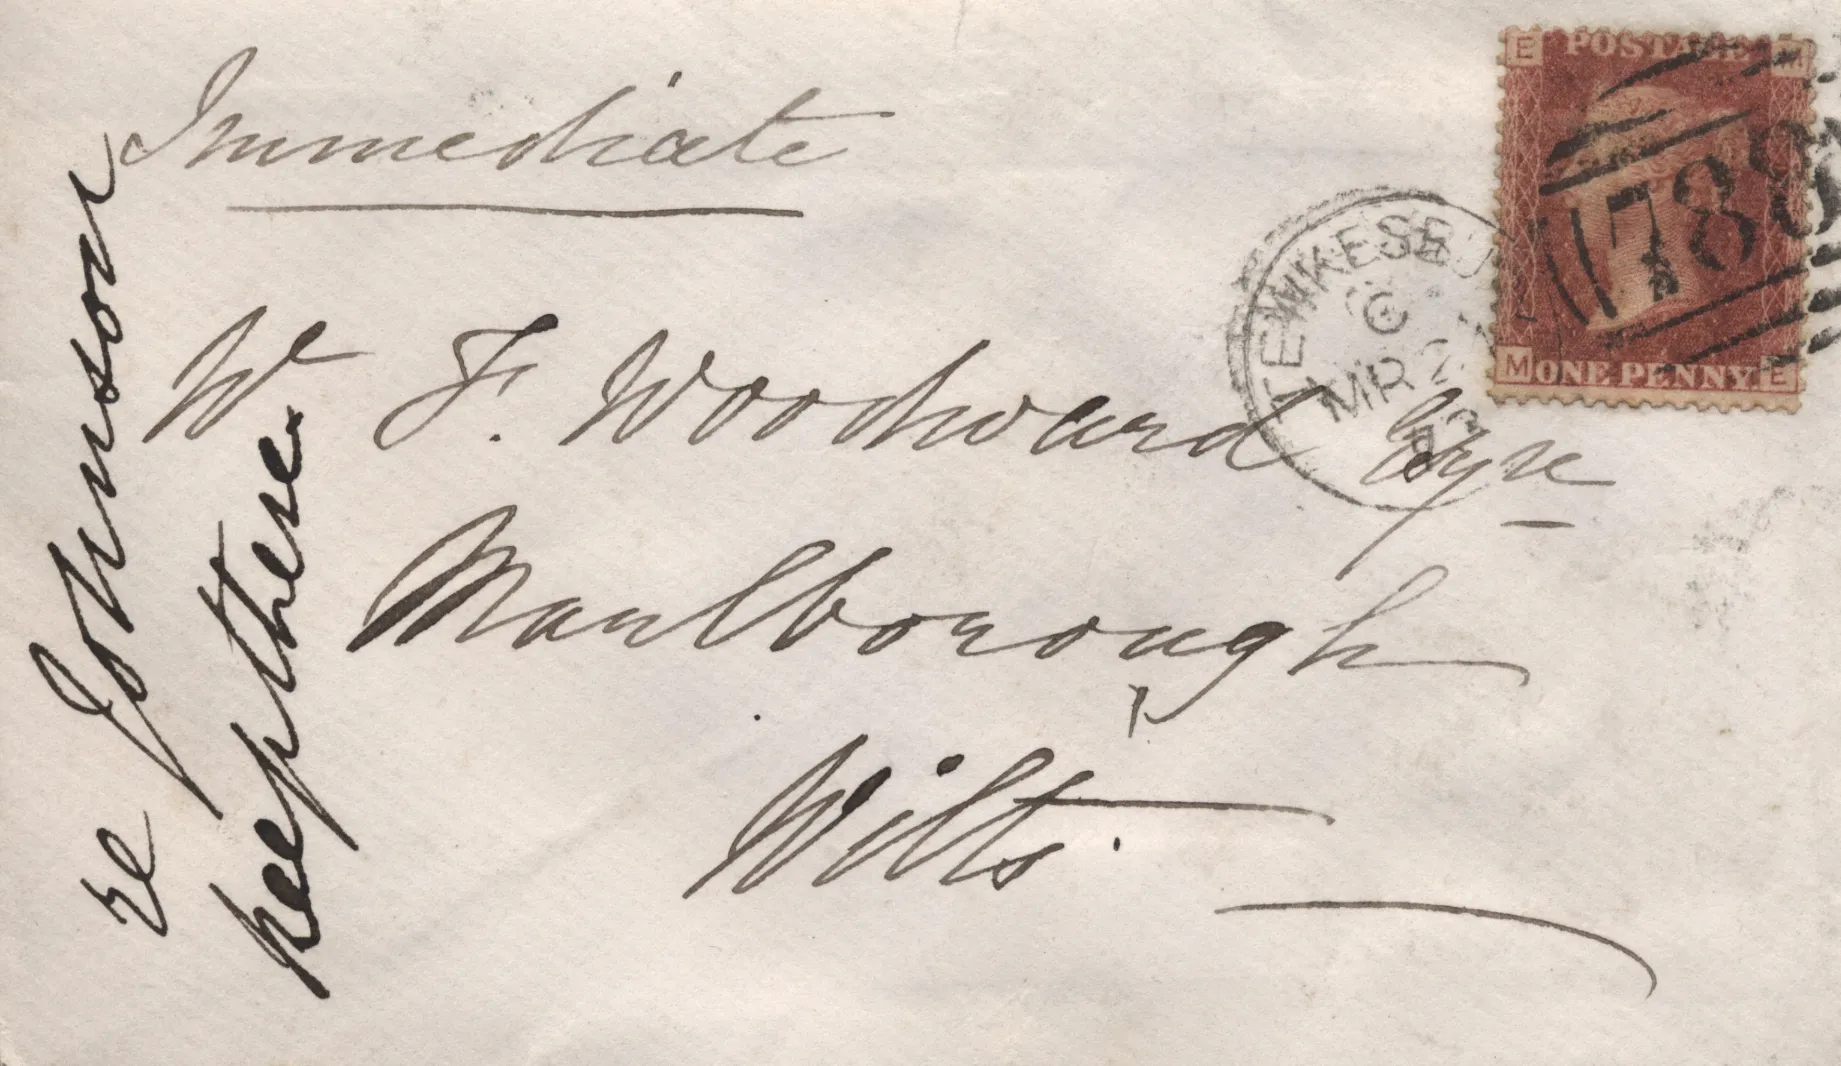 Immediate
W F. Woodward Esqre
Marlborough
Wilts.
re Johnson
keep these
TEWKESBU
C
MR 2
E POSTAGE M
788
M ONE PENNY E